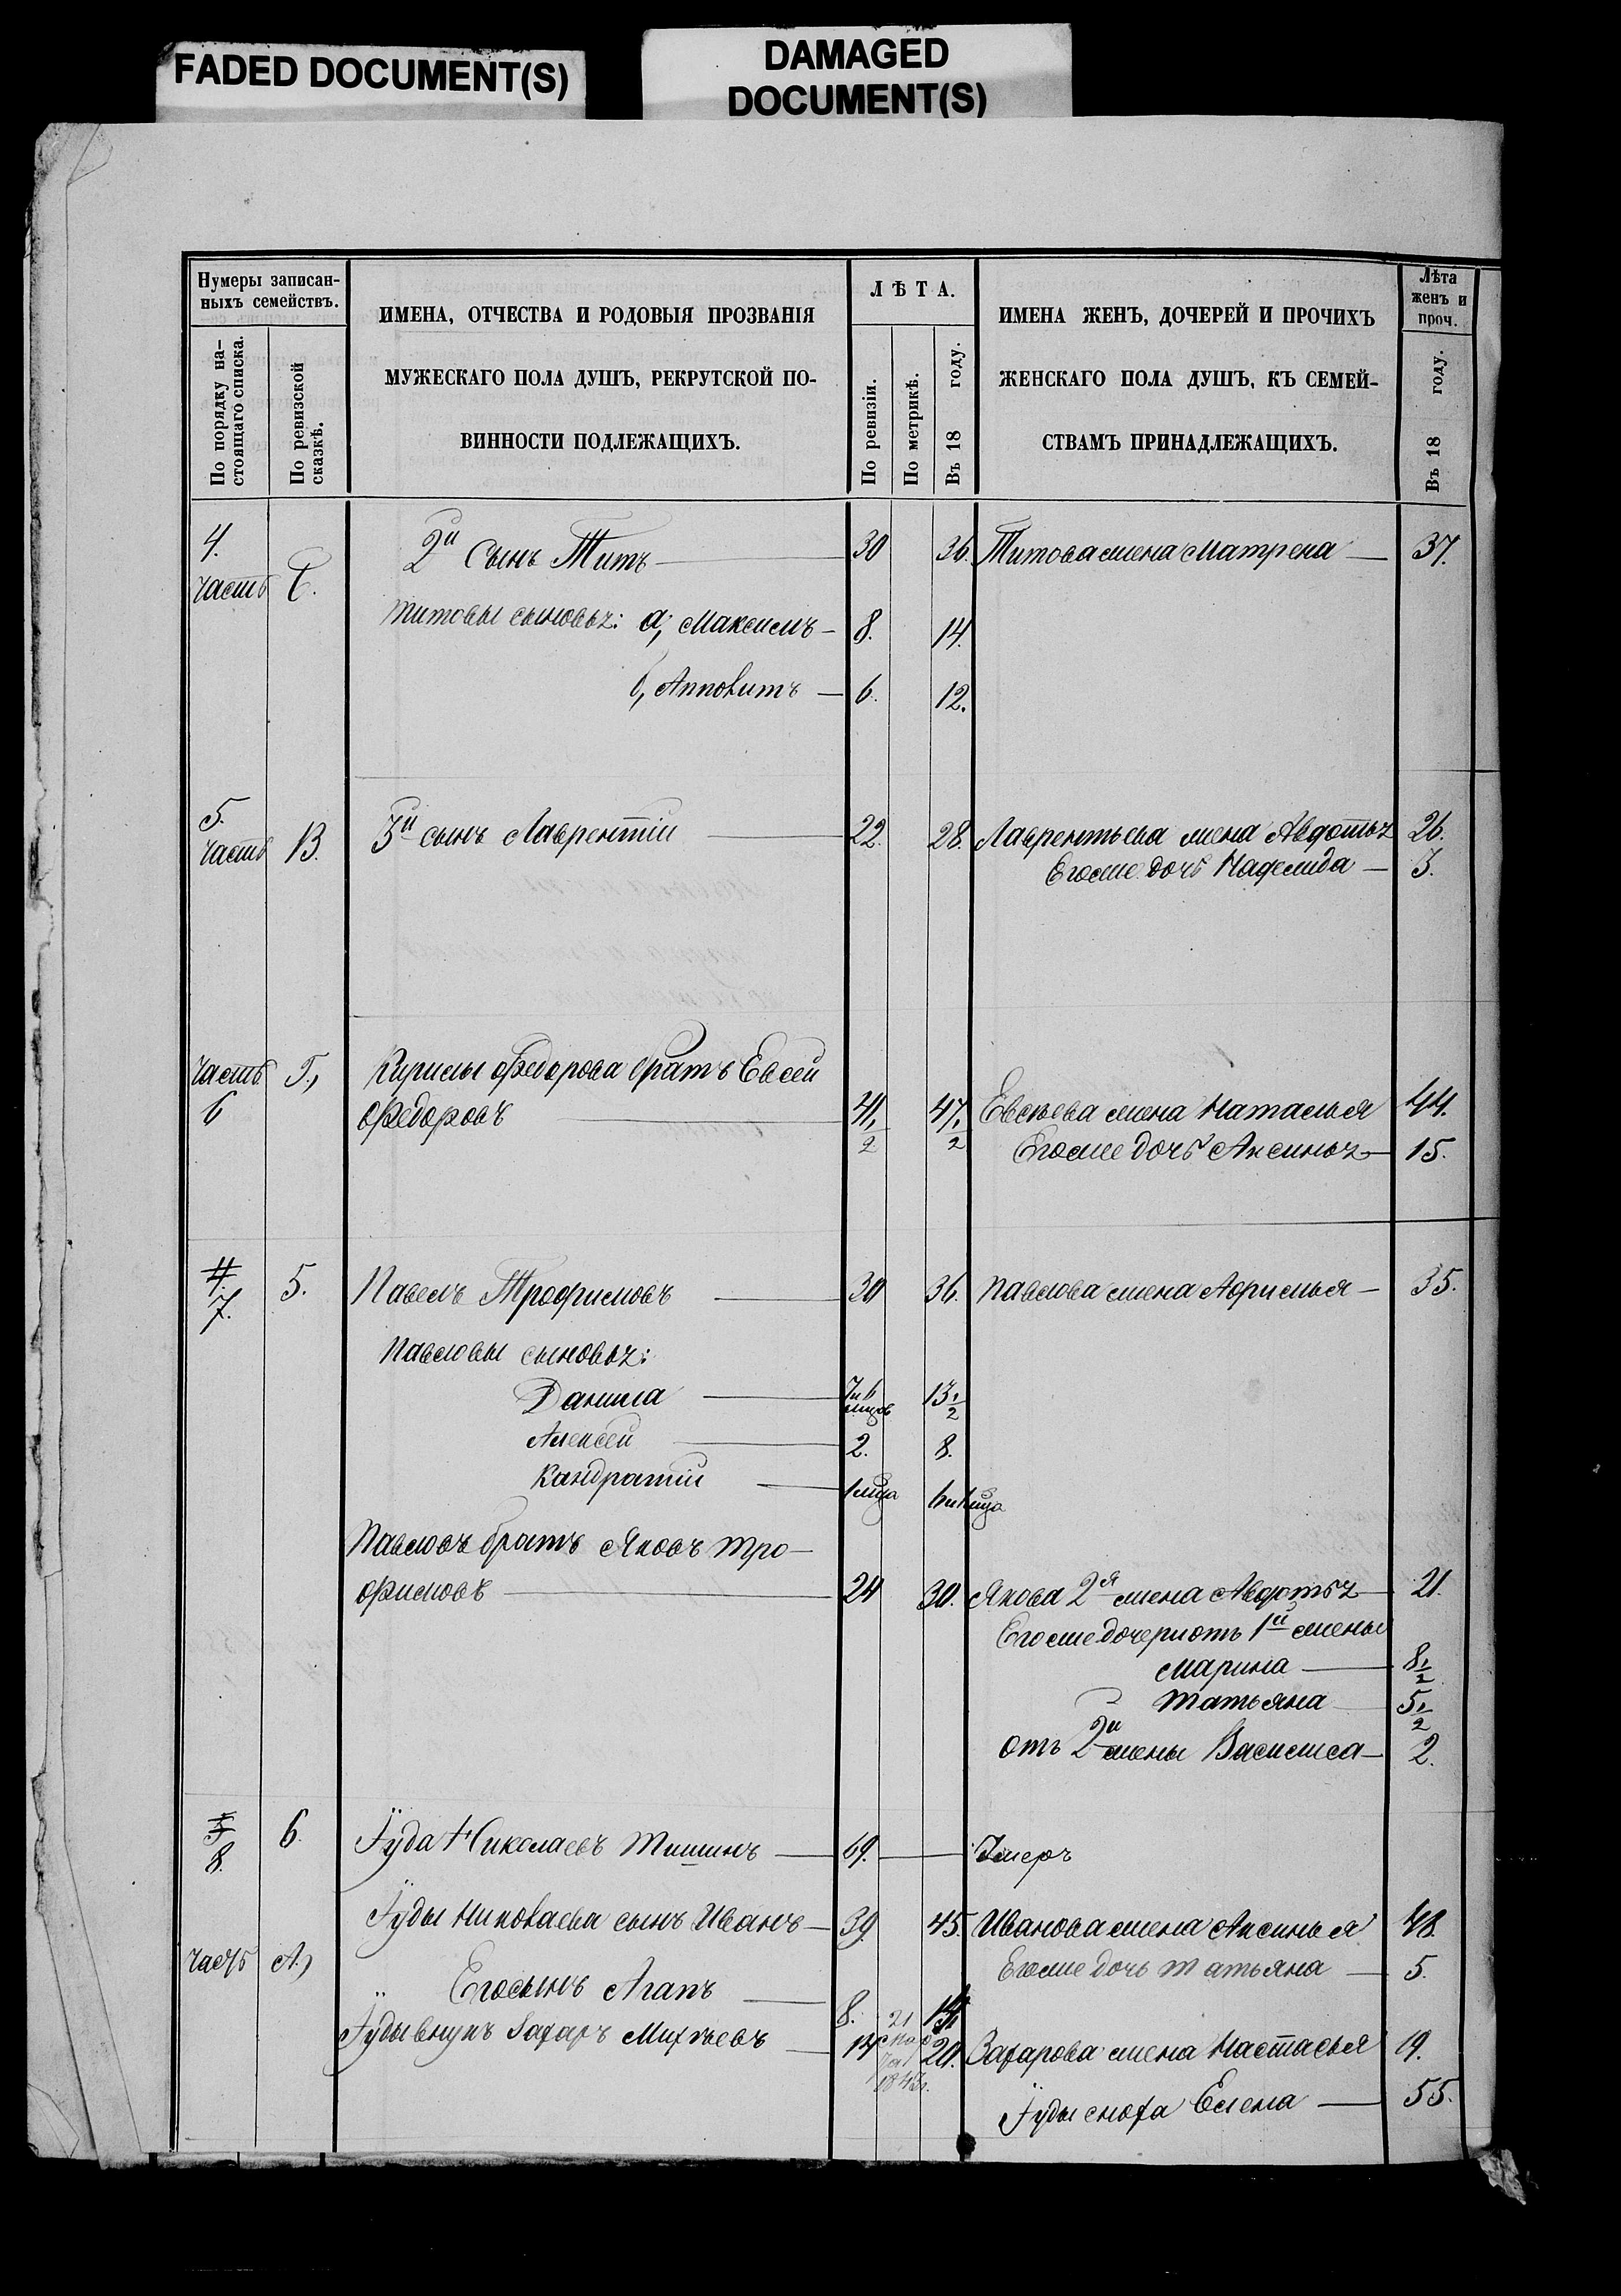 FADED DOCUMENT(S)
DAMAGED
DOCUMENT(S)
Нумеры записан-
ныхъ семействъ.
По порядку на-
стоящаго списка.
По ревизской
сказкѣ.
ИМЕНА, ОТЧЕСТВА И РОДОВЫЯ ПРОЗВАНІЯ
МУЖЕСКАГО ПОЛА ДУШЪ, РЕКРУТСКОЙ ПО-
ВИННОСТИ ПОДЛЕЖАЩИХЪ.
ЛѢТА.
По ревизіи.
По метрикѣ.
Въ 18 году.
ИМЕНА ЖЕНЪ, ДОЧЕРЕЙ И ПРОЧИХЪ
ЖЕНСКАГО ПОЛА ДУШЪ, КЪ СЕМЕЙ-
СТВАМЪ ПРИНАДЛЕЖАЩИХЪ.
Лѣта
женъ и
проч.
Въ 18 году.
4. часть Б. 2й Сынъ Титъ 30 36. Титова жена Матрена 37.
Титовы сыновья: а, Максимъ 8. 14.
б, Апполитъ 6. 12.
5. часть В. 3й сынъ Лаврентій 22. 28. Лаврентьева жена Авдотья 26.
Егоже дочь Надежда 3.
часть Г, Кирилы Федорова братъ Евсей
6 Федоровъ 41 1/2 47 1/2 Евсѣева жена Наталья 44.
Егоже дочь Аксинья 15.
4. 7. 5. Павелъ Трофимовъ 30 36. Павлова жена Афимья 35.
Павловы сыновья:
Данила 7 и 6 мцов 13 1/2
Алексей 2. 8.
Кандратій 1 мца 6 и 1 мца
Павловъ братъ Яковъ Тро-
фимовъ 24 30. Якова 2я жена Авдотья 21.
Егоже дочери отъ 1й жены
Марина 8 1/2
Татьяна 5 1/2
отъ 2й жены Василиса 2.
5 8. 6. Іуда Николаевъ Тишинъ 69. Умеръ
Іуды Николаева сынъ Иванъ 39. 45. Иванова жена Аксинья 48.
часть А, Егоже дочь Татьяна 5.
Егосынъ Агапъ 8. 14
Іуды внукъ Захаръ Михѣевъ 14 21 20. Захарова жена Настасья 19.
1843г.
Іуды сноха Елена 55.